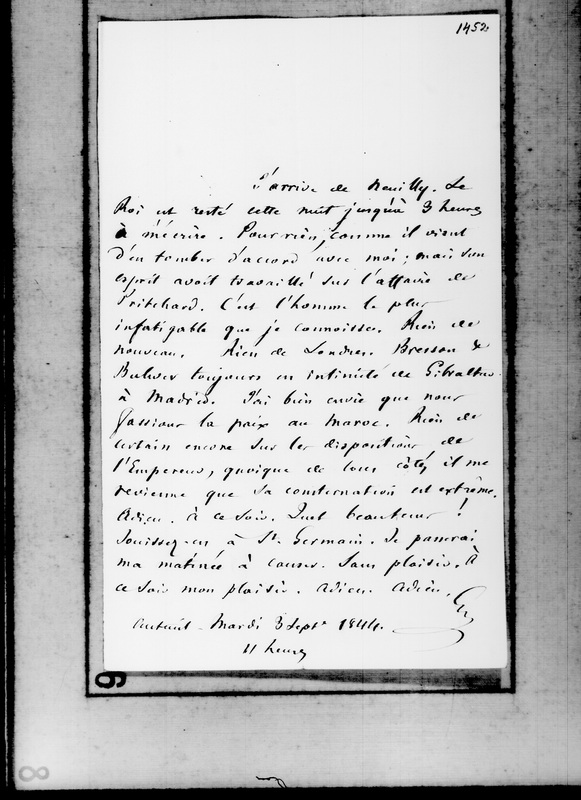 1452
J'arrive de Neuilly. Le
Roi est resté cette nuit jusqu'à 3 heures
à m'écrire. Pour rien, comme il vient
d'en tomber d'accord avec moi ; mais son
esprit avoit travaillé sur l'affaire de
Pritchard. C'est l'homme le plus
infatigable que je connoisse. Rien de
nouveau. Rien de Londres. Bresson &
Bulwer toujours en intimité de Gibraltar
à Madrid. J'ai bien envie que nous
fassions la paix au Maroc. Rien de
certain encore sur les dispositions de
l'Empereur, quoique de tous côtés il me
revienne que sa consternation est extrême.
Adieu. à ce soir. Quel beau tems !
Jouissez-en à St Germain. Je passerai
ma matinée à causer. Sans plaisir. À
ce soir mon plaisir. Adieu. Adieu.
Auteuil - Mardi 3 Sept. 1844.
11 heures
9
8